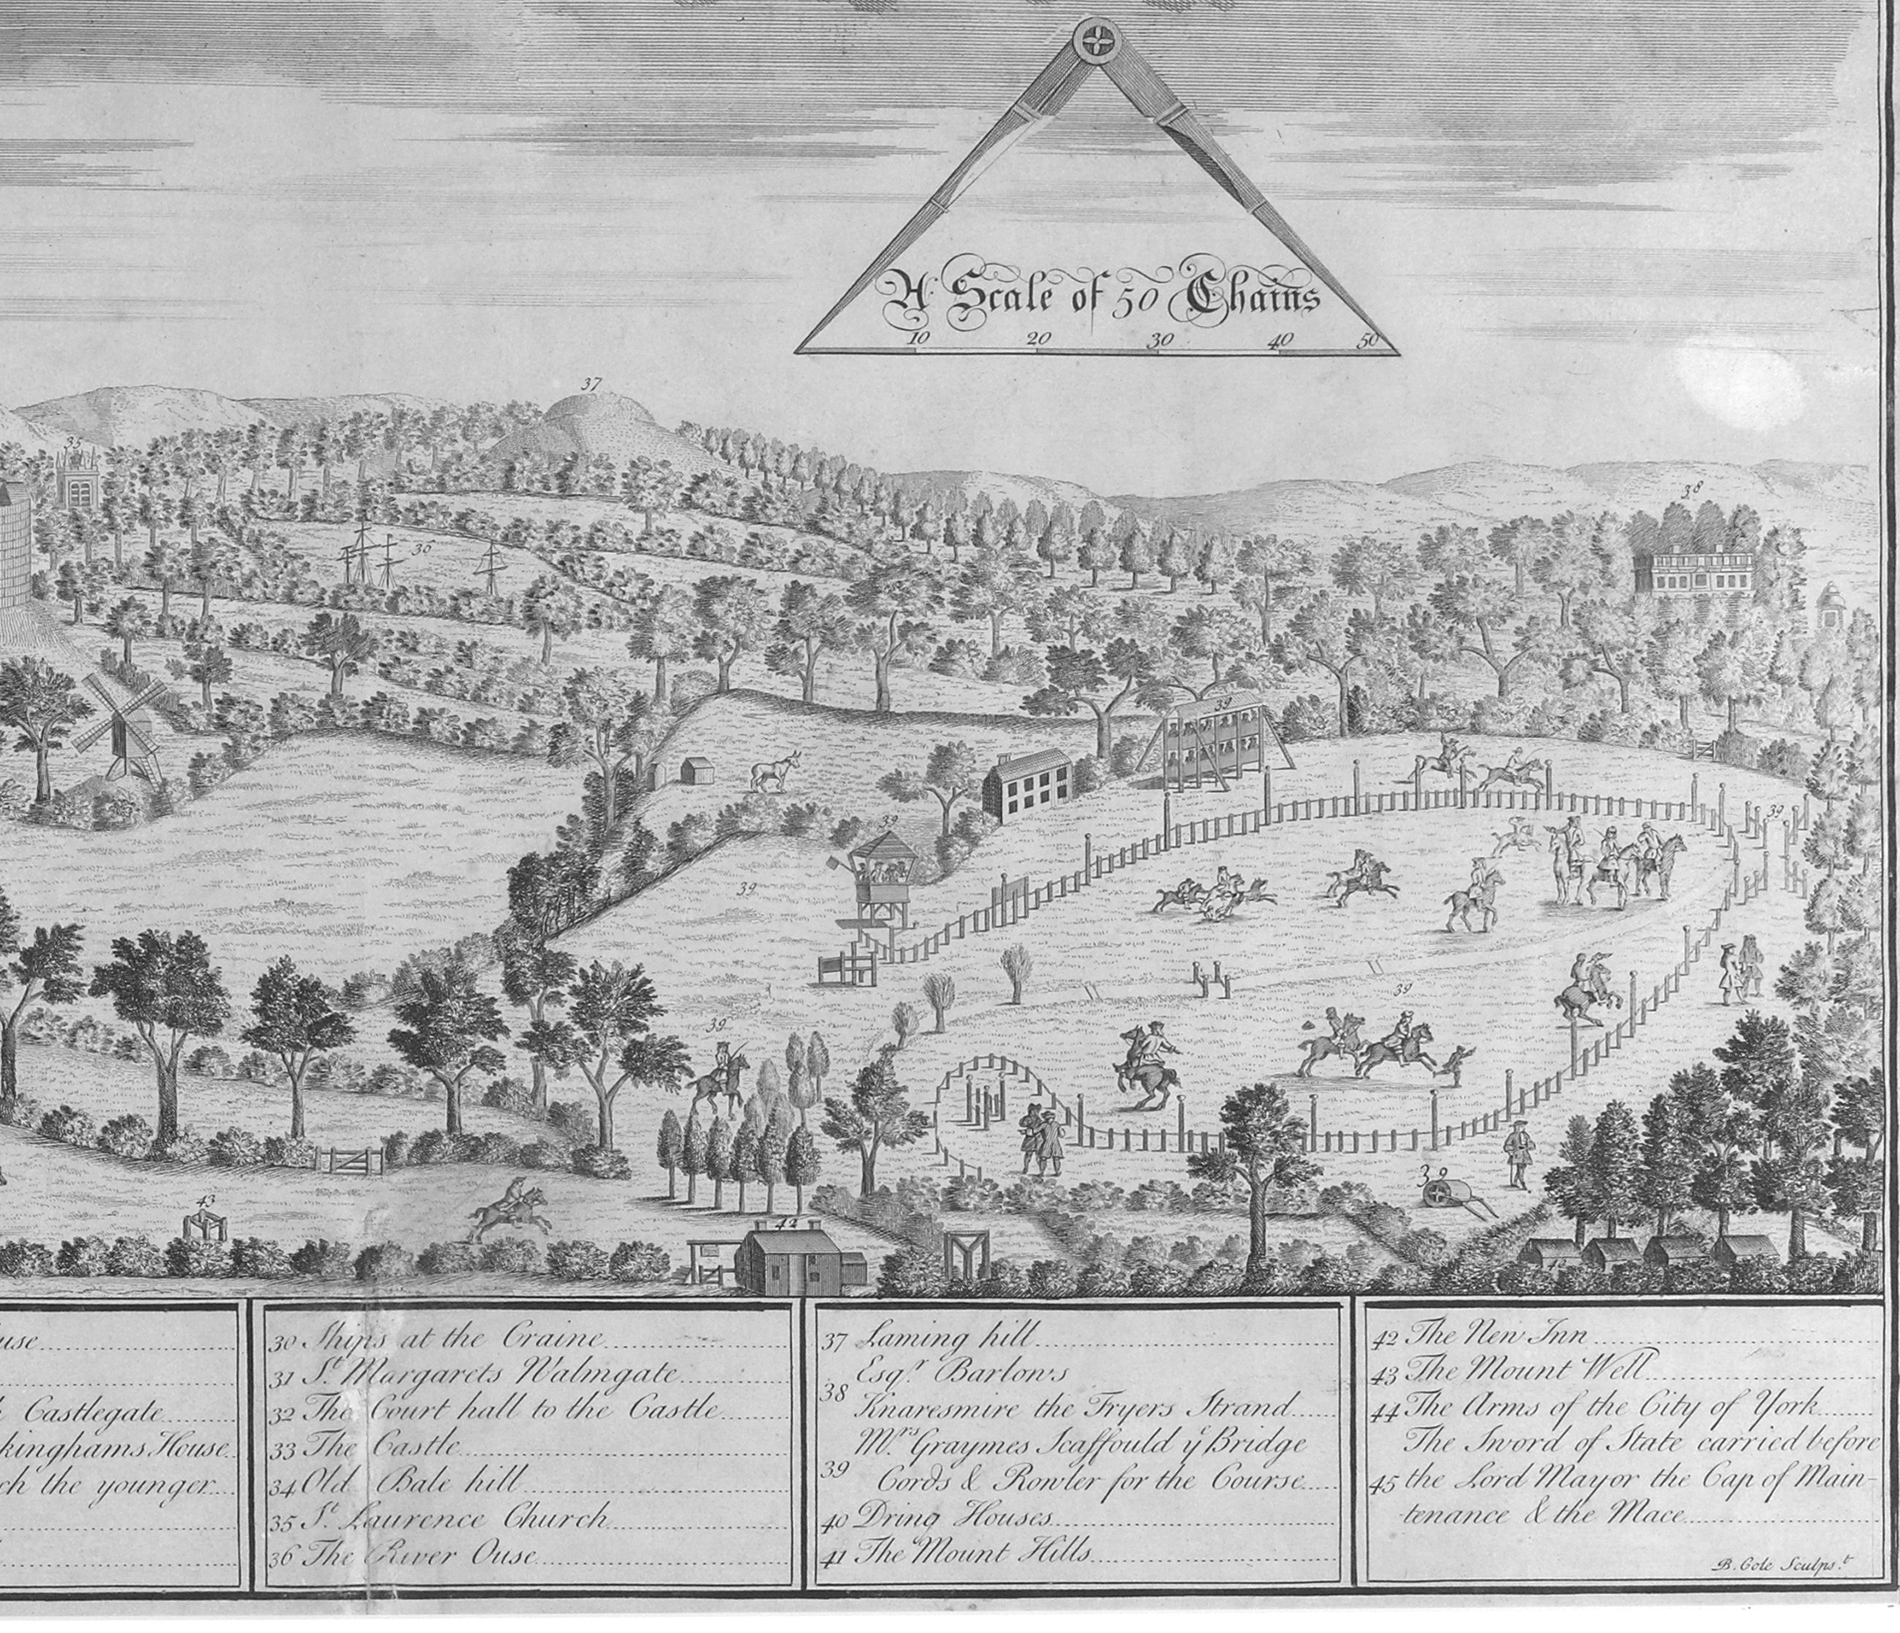 A Scale of 50 Chains
10 20 30 40 50
37
35
38
36
39
39
39
39
39
39
39
43
42
use
h Castlegate
kinghams House
ch the younger
30 Ships at the Craine
31 St. Margarets Walmgate
32 The Court hall to the Castle
33 The Castle
34 Old Bale hill
35 St. Laurence Church
36 The River Ouse
37 Laming hill
Esqr. Barlows
38
Knaresmire the Fryers Strand
Mrs. Graymes Scaffould ye Bridge
39
Cords & Rowler for the Course
40 Dring Houses
41 The Mount Hills
42 The New Inn
43 The Mount Well
44 The Arms of the City of York
The Sword of State carried before
45 the Lord Mayor the Cap of Main-
tenance & the Mace
B. Cole Sculpst.